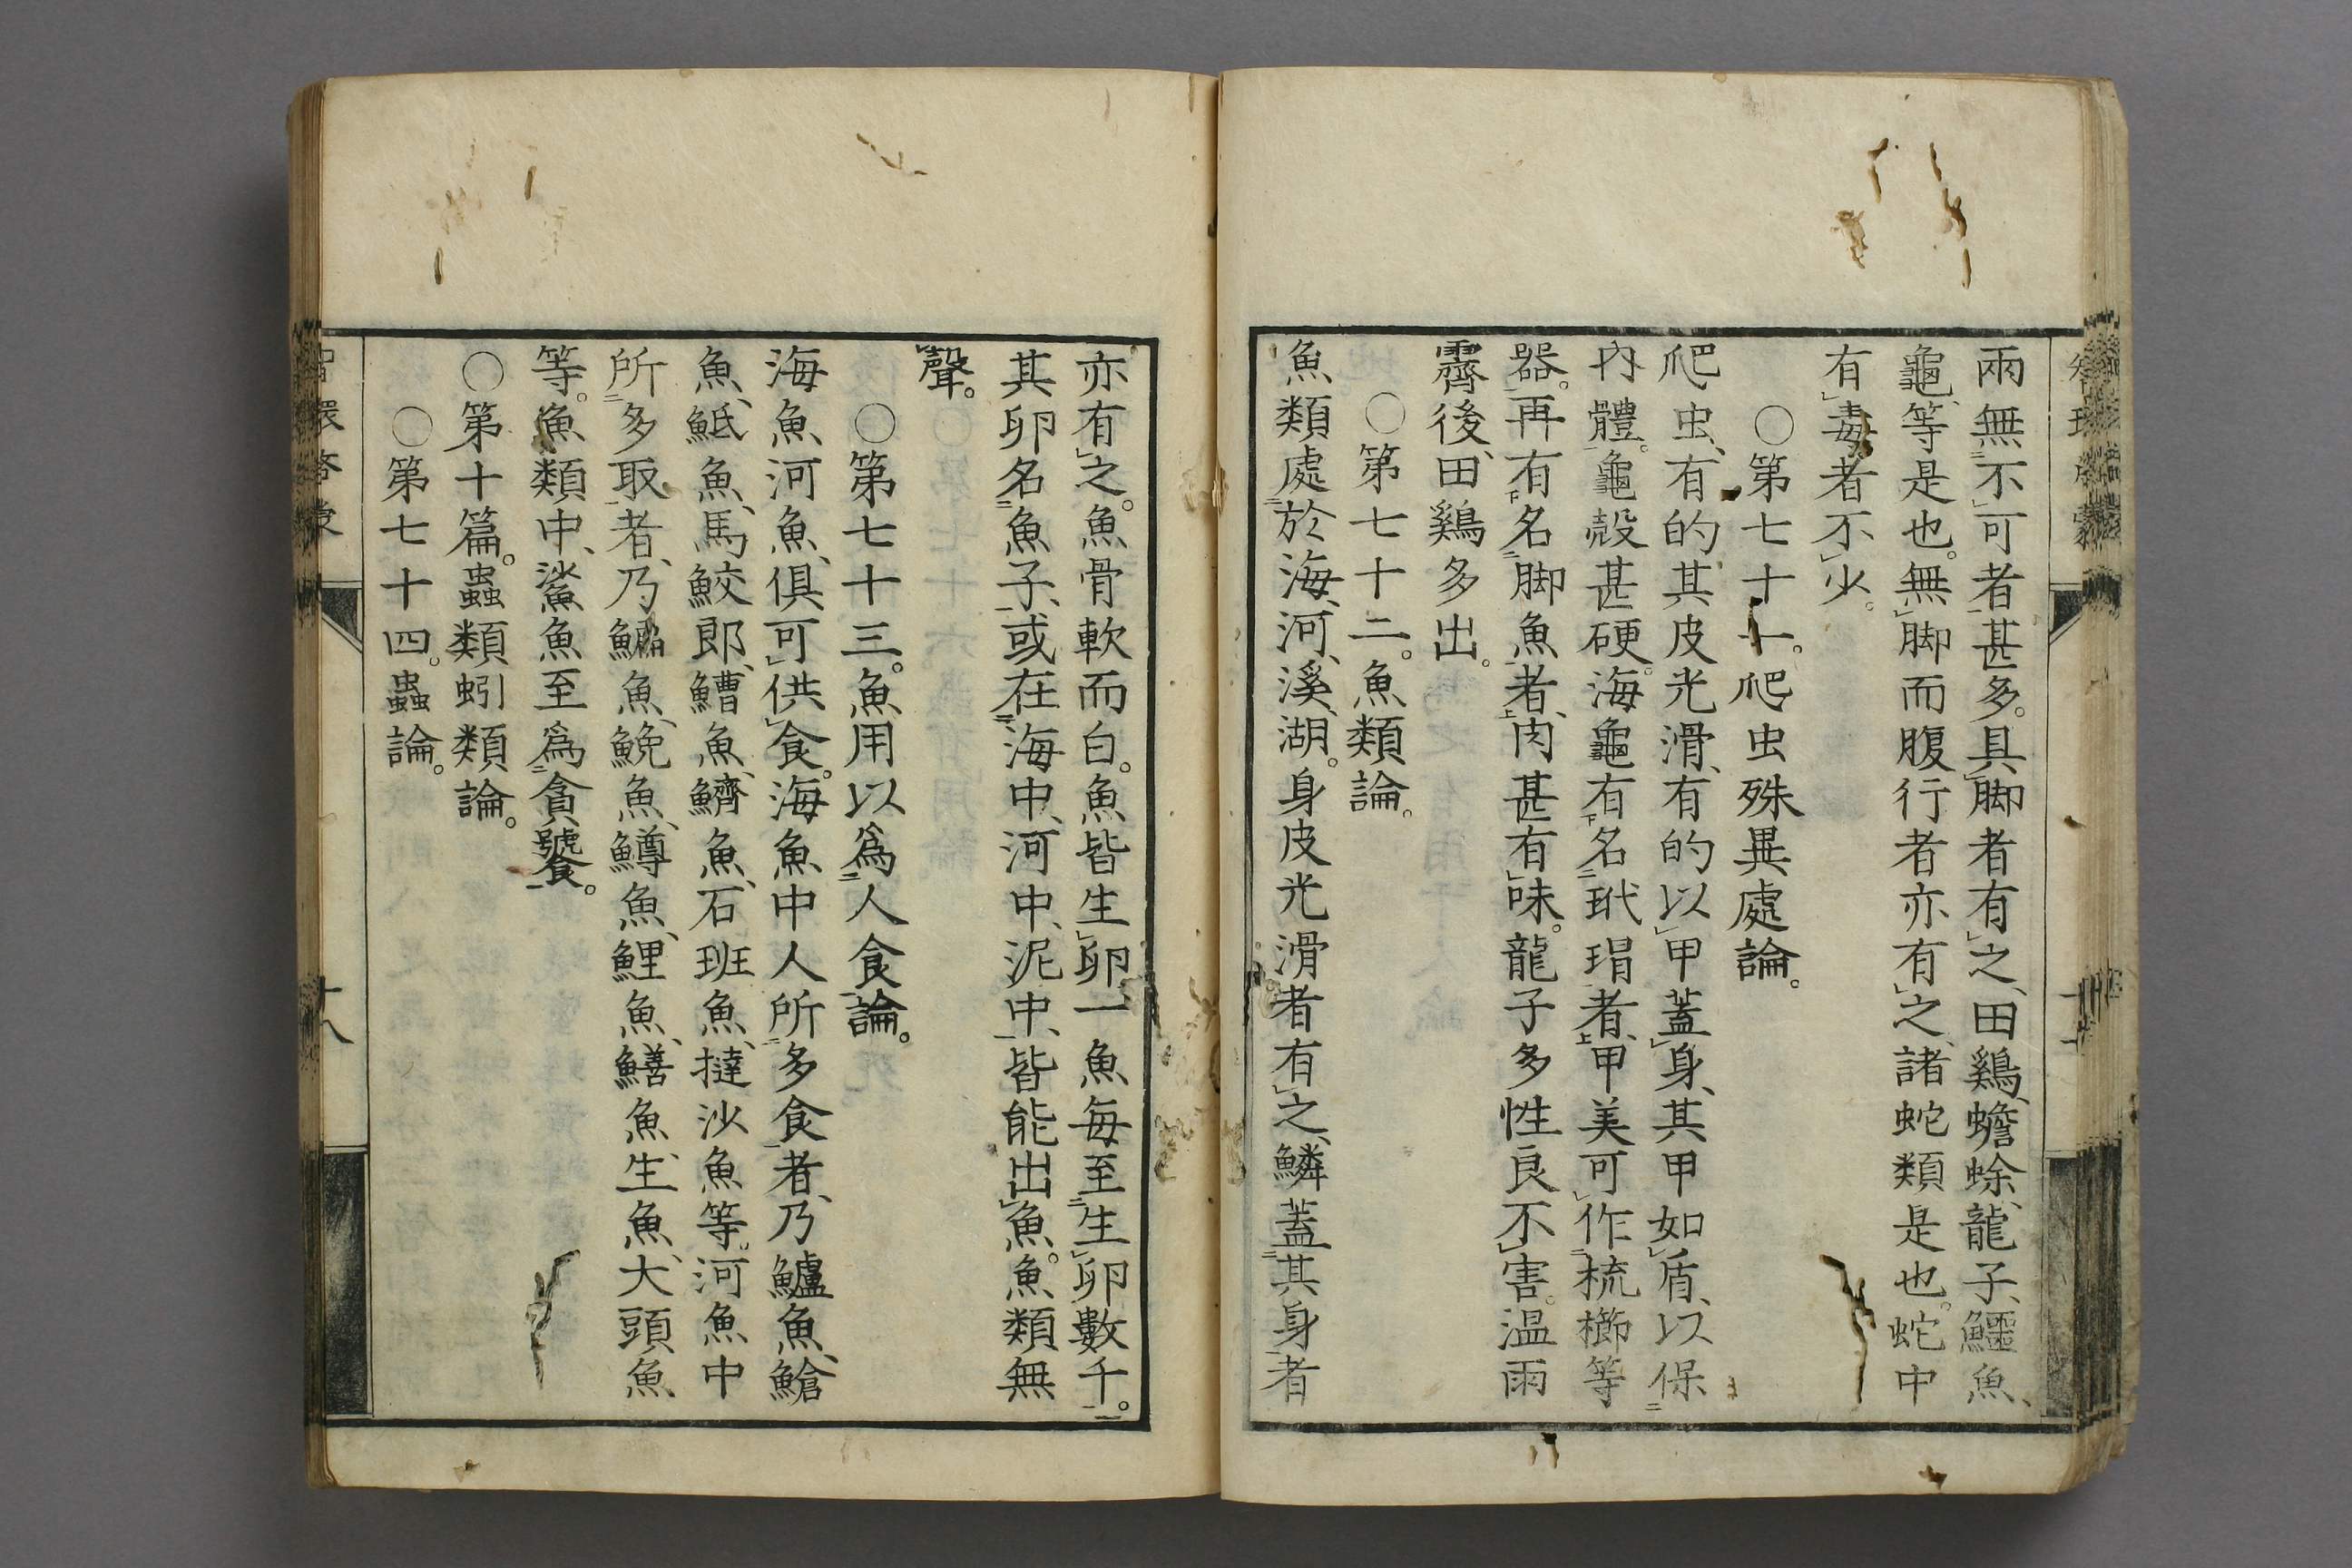 兩無不可者甚多。具脚者有之、田鷄、蟾蜍、龍子、鱷魚、
龜、等是也。無脚而腹行者亦有之、諸蛇類是也。蛇中
有毒者不少。
〇第七十一。爬虫殊異處論。
爬虫、有的其皮光滑、有的以甲蓋身、其甲如盾、以保
內體。龜殼甚硬。海龜有名玳瑁者、甲美可作梳櫛等
器。再有名脚魚者、肉甚有味。龍子多性良不害。温雨
霽後、田鷄多出。
〇第七十二。魚類論。
魚類處於海、河、溪、湖。身皮光滑者有之、鱗蓋其身者
亦有之。魚骨軟而白。魚皆生卵、一魚每至生卵數千。
其卵名魚子、或在海中、河中、泥中、皆能出魚。魚類無
聲。
〇第七十三。魚用以爲人食論。
海魚、河魚、俱可供食。海魚中人所多食者、乃鱸魚、鰽
魚、魾魚、馬鮫郎、鰽魚、鱭魚、石班魚、撻沙魚等。河魚中
所多取者、乃鯿魚、鮸魚、鱒魚、鯉魚、鱔魚、生魚、大頭魚
等。魚類中、鯊魚至爲貪饕。
〇第十篇。蟲類蚓類論。
〇第七十四。蟲論。
智環啓蒙
十八